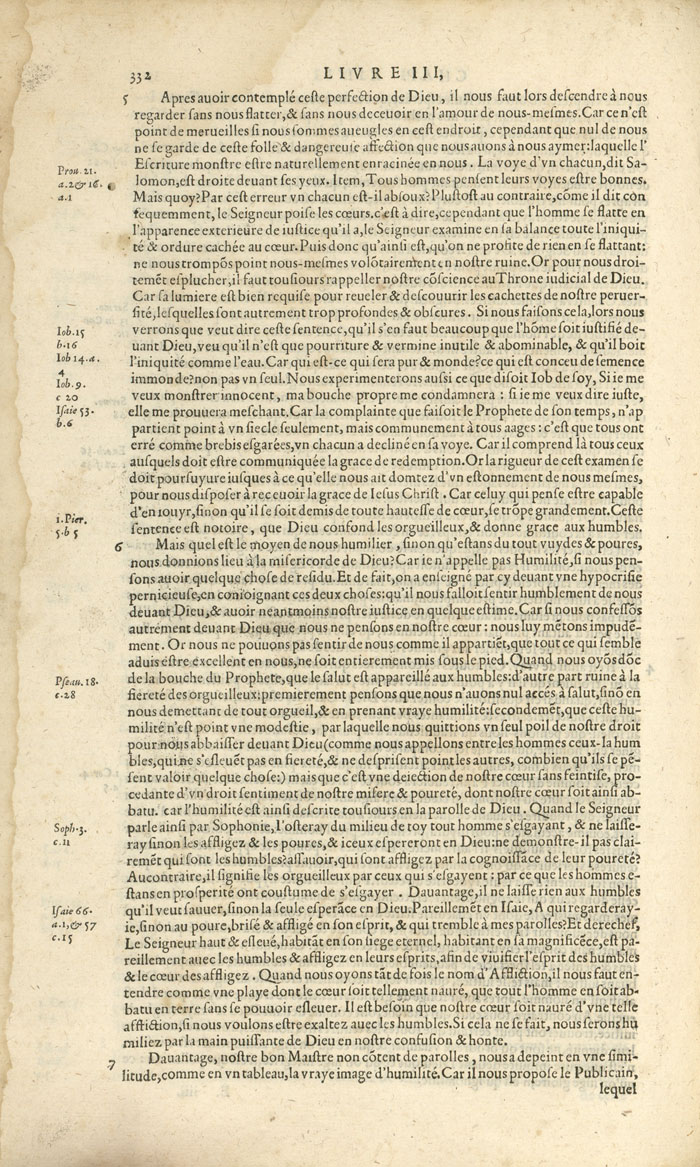 332 LIVRE III,
5 Apres auoir contemplé ceste perfection de Dieu, il nous faut lors descendre à nous
regarder sans nous flatter,& sans nous deceuoir en l'amour de nous-mesmes.Car ce n'est
point de merueilles si nous sommes aueugles en cest endroit, cependant que nul de nous
ne se garde de ceste folle & dangereuse affection que nous auons à nous aymer:laquelle l'
Escriture monstre estre naturellement enracinée en nous. La voye d'vn chacun,dit Sa-
Prou. 21.
a.2 & 16.
a.1
lomon,est droite deuant ses yeux. Item,Tous hommes pensent leurs voyes estre bonnes.
Mais quoy?Par cest erreur vn chacun est-il absoux?Plustost au contraire,cōme il dit con
sequemment,le Seigneur poise les cœurs.c'est à dire,cependant que l'homme se flatte en
l'apparence exterieure de iustice qu'il a,le Seigneur examine en sa balance toute l'iniqui-
té & ordure cachée au cœur.Puis donc qu'ainsi est,qu'on ne profite de rien en se flattant:
ne nous trompōs point nous-mesmes volōtairement en nostre ruine.Or pour nous droi-
temēt esplucher,il faut tousiours rappeller nostre cōscience au Throne iudicial de Dieu.
Car sa lumiere est bien requise pour reueler & descouurir les cachettes de nostre peruer-
sité,lesquelles sont autrement trop profondes & obscures. Si nous faisons cela,lors nous
Iob.15
b.16
Iob 14.a.
4
Iob.9.
c 20
Isaie 53.
b.6
verrons que veut dire ceste sentence,qu'il s'en faut beaucoup que l'hōme soit iustifié de-
uant Dieu,veu qu'il n'est que pourriture & vermine inutile & abominable, & qu'il boit
l'iniquité comme l'eau.Car qui est-ce qui sera pur & monde?ce qui est conceu de semence
immonde?non pas vn seul.Nous experimenterons aussi ce que disoit Iob de soy, Si ie me
veux monstrer innocent, ma bouche propre me condamnera : si ie me veux dire iuste,
elle me prouuera meschant.Car la complainte que faisoit le Prophete de son temps, n'ap
partient point à vn siecle seulement, mais communement à tous aages : c'est que tous ont
erré comme brebis esgarées,vn chacun a decliné en sa voye. Car il comprend là tous ceux
ausquels doit estre communiquée la grace de redemption.Or la rigueur de cest examen se
doit poursuyure iusques à ce qu'elle nous ait domtez d'vn estonnement de nous mesmes,
pour nous disposer à receuoir la grace de Iesus Christ. Car celuy qui pense estre capable
d'en iouyr,sinon qu'il se soit demis de toute hautesse de cœur,se trōpe grandement.Ceste
1.Pier.
5.b 5
sentence est notoire, que Dieu confond les orgueilleux,& donne grace aux humbles.
6 Mais quel est le moyen de nous humilier, sinon qu'estans du tout vuydes & poures,
nous donnions lieu à la misericorde de Dieu?Car ie n'appelle pas Humilité,si nous pen-
sons auoir quelque chose de residu.Et de fait,on a enseigné par cy deuant vne hypocrisie
pernicieuse,en conioignant ces deux choses:qu'il nous falloit sentir humblement de nous
deuant Dieu,& auoir neantmoins nostre iustice en quelque estime.Car si nous confessōs
autrement deuant Dieu que nous ne pensons en nostre cœur : nous luy mētons impudē-
ment. Or nous ne pouuons pas sentir de nous comme il appartiēt,que tout ce qui semble
aduis estre excellent en nous,ne soit entierement mis sous le pied.Quand nous oyōs dōc
Pseau.18.
c.28
de la bouche du Prophete,que le salut est appareillé aux humbles:d'autre part ruine à la
fiereté des orgueilleux:premierement pensons que nous n'auons nul accés à salut,sinō en
nous demettant de tout orgueil,& en prenant vraye humilité:secondemēt,que ceste hu-
milité n'est point vne modestie, par laquelle nous quittions vn seul poil de nostre droit
pour nous abbaisser deuant Dieu(comme nous appellons entre les hommes ceux-la hum
bles,qui ne s'esleuēt pas en fiereté,& ne desprisent point les autres, combien qu'ils se pē-
sent valoir quelque chose:) mais que c'est vne deiection de nostre cœur sans feintise, pro-
cedante d'vn droit sentiment de nostre misere & poureté, dont nostre cœur soit ainsi ab-
batu. car l'humilité est ainsi descrite tousiours en la parolle de Dieu. Quand le Seigneur
Soph.3.
c.11
parle ainsi par Sophonie,I'osteray du milieu de toy tout homme s'esgayant, & ne laisse-
ray sinon les affligez & les poures,& iceux espereront en Dieu:ne demonstre-il pas clai-
remēt qui sont les humbles?assauoir,qui sont affligez par la cognoissāce de leur poureté?
Aucontraire,il signifie les orgueilleux par ceux qui s'esgayent : par ce que les hommes e-
stans en prosperité ont coustume de s'esgayer. Dauantage,il ne laisse rien aux humbles
Isaie 66.
a.1,& 57
c.15
qu'il veut sauuer,sinon la seule esperāce en Dieu.Pareillemēt en Isaie, A qui regarderay-
ie,sinon au poure,brisé & affligé en son esprit,& qui tremble à mes parolles?Et derechef,
Le Seigneur haut & esleué,habitāt en son siege eternel, habitant en sa magnificēce,est pa-
reillement auec les humbles & affligez en leurs esprits,afin de viuifier l'esprit des humbles
& le cœur des affligez. Quand nous oyons tāt de fois le nom d'Affliction,il nous faut en-
tendre comme vne playe dont le cœur soit tellement nauré, que tout l'homme en soit ab-
batu en terre sans se pouuoir esleuer. Il est besoin que nostre cœur soit nauré d'vne telle
affliction,si nous voulons estre exaltez auec les humbles.Si cela ne se fait, nous serons hu
miliez par la main puissante de Dieu en nostre confusion & honte.
7 Dauantage, nostre bon Maistre non cōtent de parolles, nous a depeint en vne simi-
litude,comme en vn tableau,la vraye image d'humilité.Car il nous propose le Publicain,
lequel